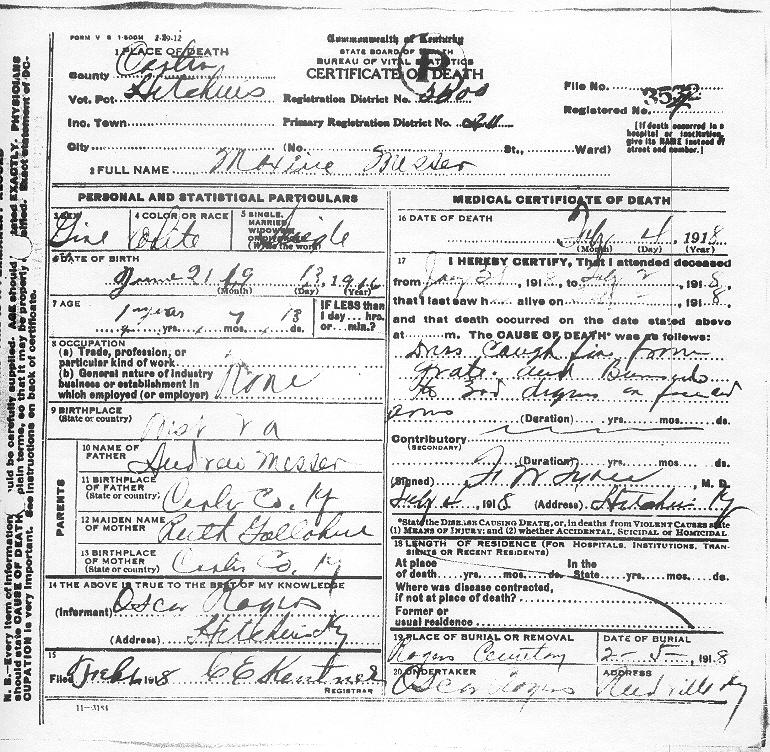 FORM V S 1-500M 2-20-12
Commonwealth of Kentucky
STATE BOARD OF HEALTH
BUREAU OF VITAL STATISTICS
CERTIFICATE OF DEATH
P
1 PLACE OF DEATH
County Carter
Vot. Pct. Hitchins
Registration District No.
File No.
Registered No.
Inc. Town
Primary Registration District No.
[If death occurred in a hospital or institution, give its NAME instead of street and number.]
City (No. St., Ward)
2 FULL NAME Maxine Messer
PERSONAL AND STATISTICAL PARTICULARS
3 SEX Girl
4 COLOR OR RACE White
5 SINGLE, MARRIED, WIDOWED OR DIVORCED (Write the word) Single
6 DATE OF BIRTH
June 21 19 13, 1916
(Month) (Day) (Year)
7 AGE
1 year 7 13
yrs. mos. ds.
IF LESS than 1 day ... hrs. or ... min.?
8 OCCUPATION
(a) Trade, profession, or particular kind of work
(b) General nature of industry business or establishment in which employed (or employer) None
9 BIRTHPLACE (State or country) West Va
PARENTS
10 NAME OF FATHER Andrew Messer
11 BIRTHPLACE OF FATHER (State or country) Carter Co. Ky
12 MAIDEN NAME OF MOTHER Ruth
13 BIRTHPLACE OF MOTHER (State or country) Carter Co. Ky
14 THE ABOVE IS TRUE TO THE BEST OF MY KNOWLEDGE
(Informant) Oscar Rogers
(Address) Hitchins Ky
15
Filed Feb 6 1918 C E
REGISTRAR
11-3184
MEDICAL CERTIFICATE OF DEATH
16 DATE OF DEATH
Feby 4, 1918
(Month) (Day) (Year)
17 I HEREBY CERTIFY, That I attended deceased
from Jany 31 1918, to Feby 2, 1918,
that I last saw h alive on 1918,
and that death occurred on the date stated above
at m. The CAUSE OF DEATH* was as follows:
Dress Caugh fire from
Grate. and Burned
to 3rd degree on face and
arms
(Duration) yrs. mos. ds.
Contributory
(SECONDARY)
(Duration) yrs. mos. ds.
(Signed) M. D.
Feby 6, 1918 (Address) Hitchins Ky
*State the DISEASE CAUSING DEATH, or, in deaths from VIOLENT CAUSES state (1) MEANS OF INJURY; and (2) whether ACCIDENTAL, SUICIDAL or HOMICIDAL
18 LENGTH OF RESIDENCE (FOR HOSPITALS, INSTITUTIONS, TRANSIENTS OR RECENT RESIDENTS)
At place of death yrs. mos. ds. In the State yrs. mos. ds.
Where was disease contracted, if not at place of death?
Former or usual residence
19 PLACE OF BURIAL OR REMOVAL
Rogers Cemetery
DATE OF BURIAL
2-5-, 1918
20 UNDERTAKER
Oscar Rogers
ADDRESS
Reedville Ky
N. B.—Every item of information should be carefully supplied. AGE should be stated EXACTLY. PHYSICIANS
should state CAUSE OF DEATH in plain terms, so that it may be properly classified. Exact statement of OC-
CUPATION is very important. See instructions on back of certificate.